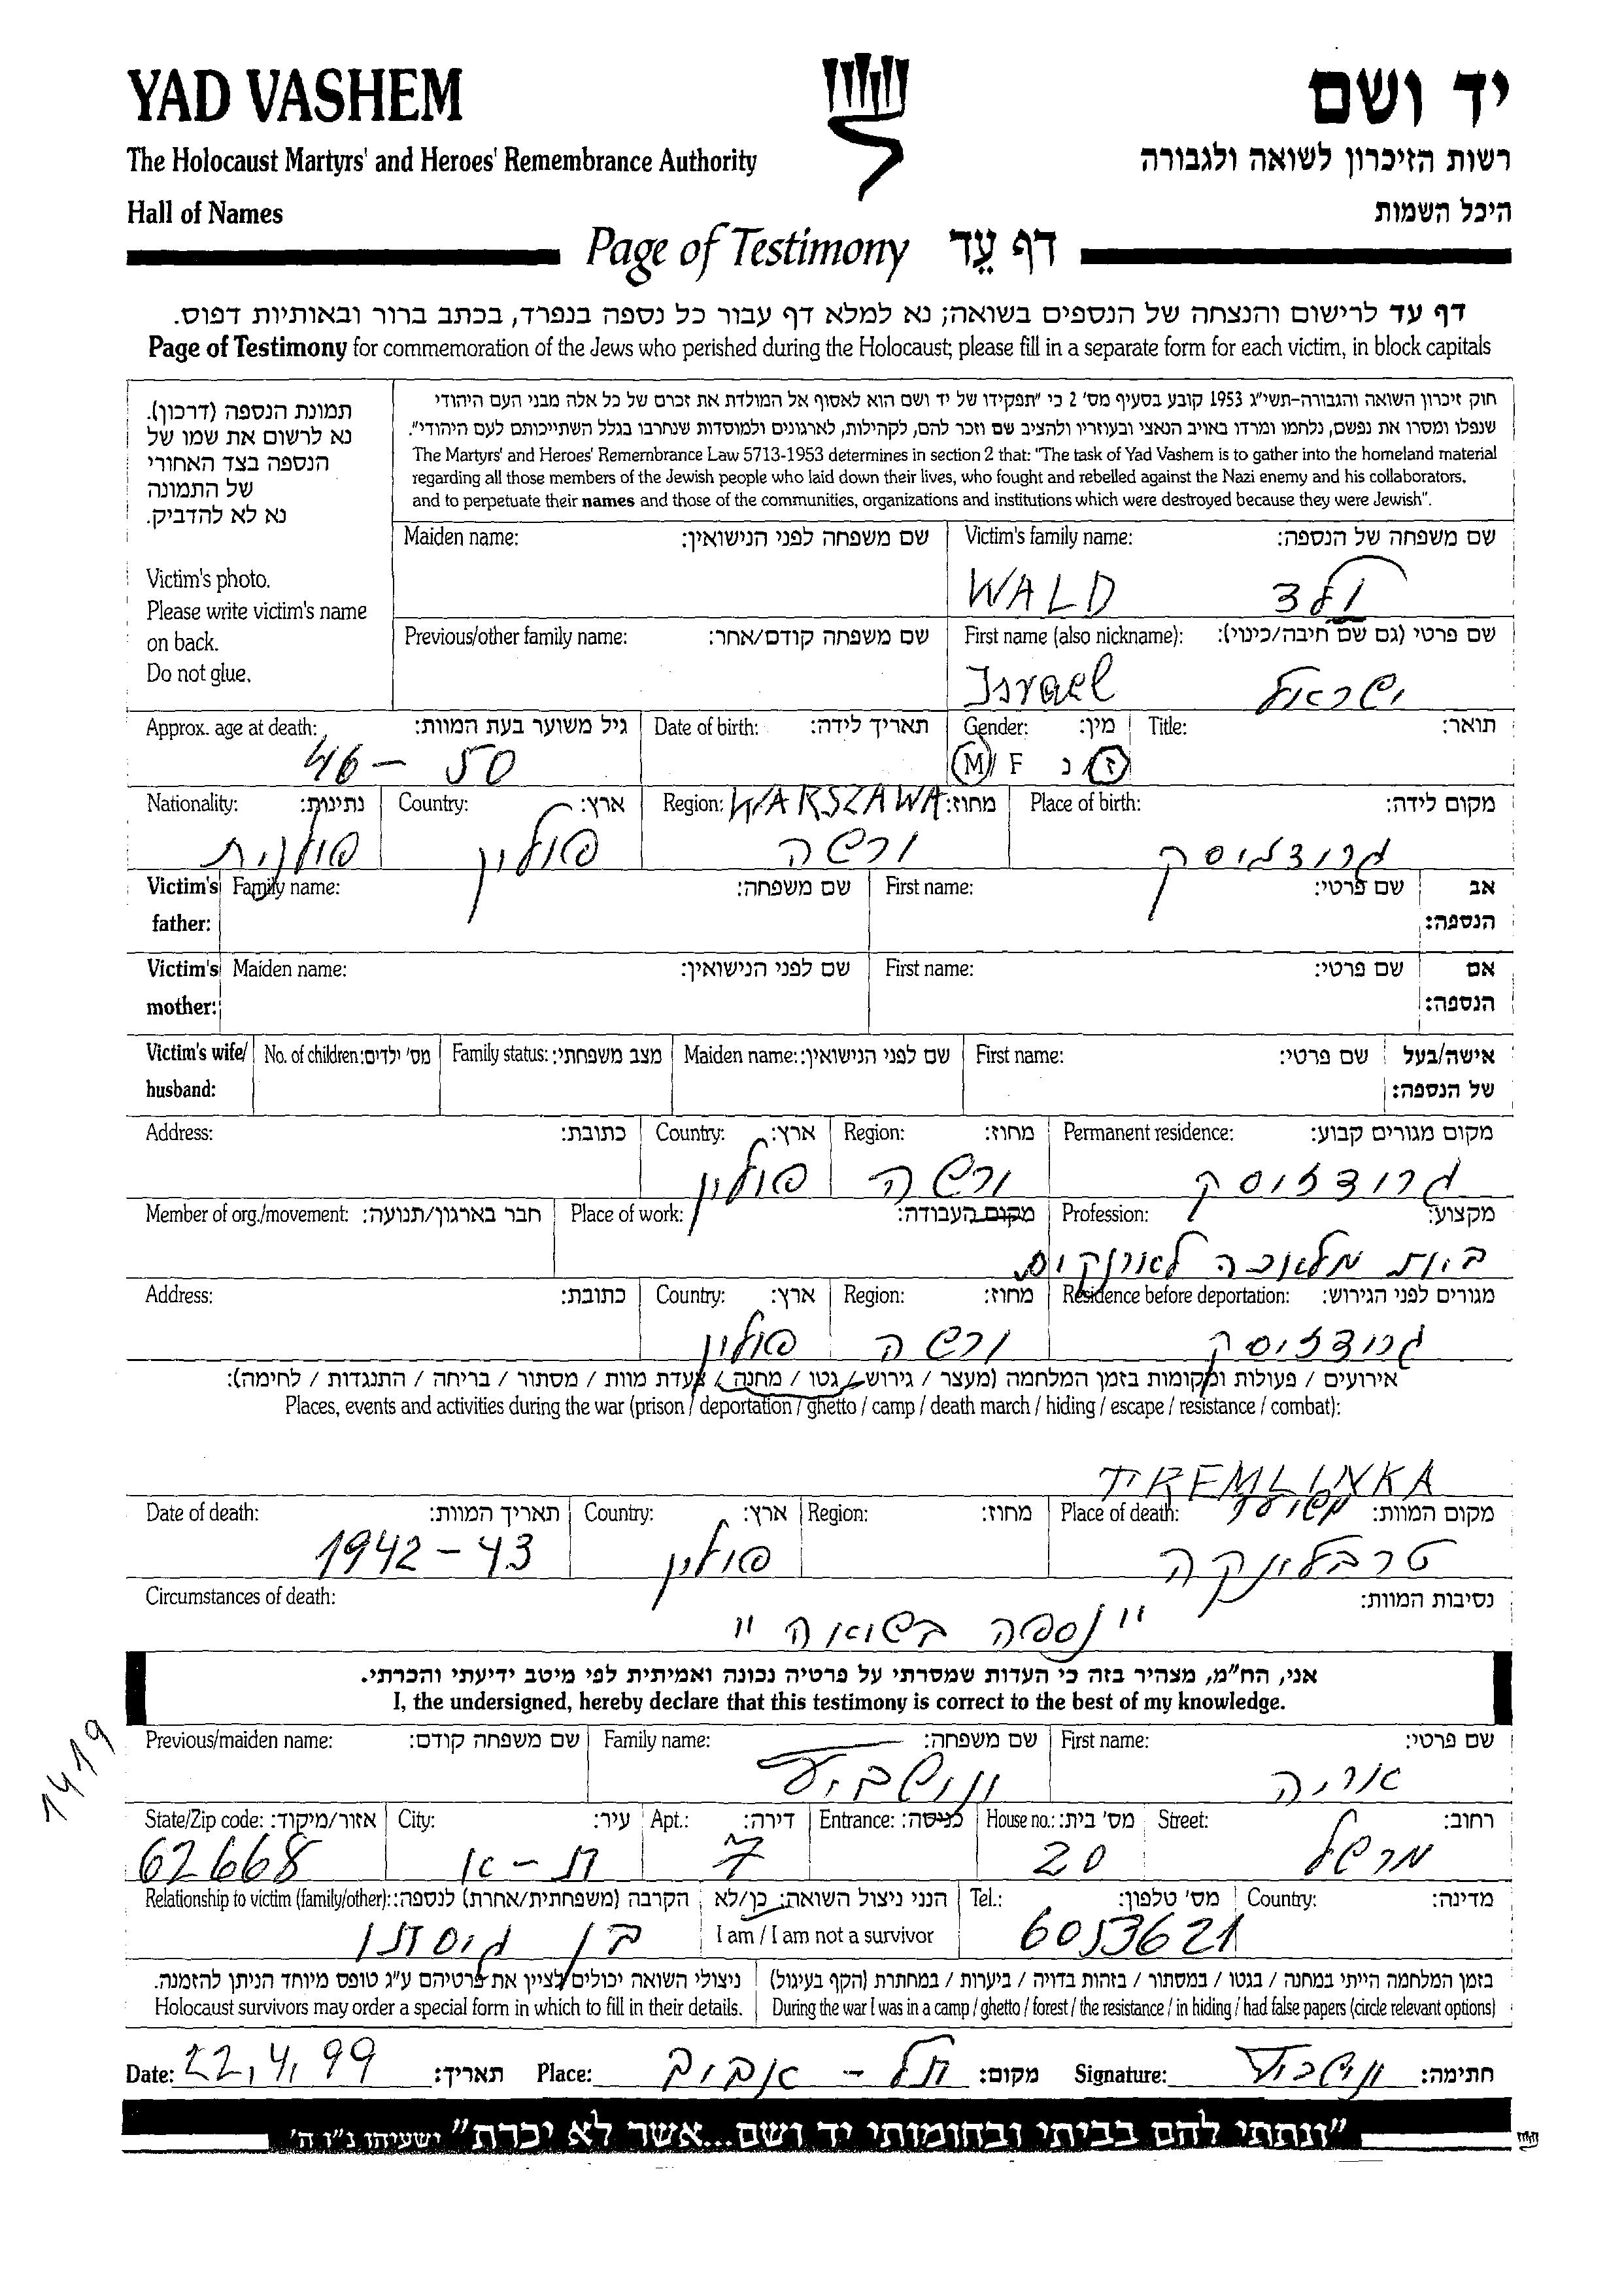 YAD VASHEM
יד ושם
The Holocaust Martyrs' and Heroes' Remembrance Authority
רשות הזיכרון לשואה ולגבורה
Hall of Names
היכל השמות
Page of Testimony דף עֵד
דף עד לרישום והנצחה של הנספים בשואה; נא למלא דף עבור כל נספה בנפרד, בכתב ברור ובאותיות דפוס.
Page of Testimony for commemoration of the Jews who perished during the Holocaust; please fill in a separate form for each victim, in block capitals
תמונת הנספה (דרכון).
נא לרשום את שמו של
הנספה בצד האחורי
של התמונה
נא לא להדביק.
Victim's photo.
Please write victim's name
on back.
Do not glue.
חוק זיכרון השואה והגבורה-תשי"ג 1953 קובע בסעיף מס' 2 כי "תפקידו של יד ושם הוא לאסוף אל המולדת את זכרם של כל אלה מבני העם היהודי
שנפלו ומסרו את נפשם, נלחמו ומרדו באויב הנאצי ובעוזריו ולהציב שם וזכר להם, לקהילות, לארגונים ולמוסדות שנחרבו בגלל השתייכותם לעם היהודי".
The Martyrs' and Heroes' Remembrance Law 5713-1953 determines in section 2 that: "The task of Yad Vashem is to gather into the homeland material
regarding all those members of the Jewish people who laid down their lives, who fought and rebelled against the Nazi enemy and his collaborators,
and to perpetuate their names and those of the communities, organizations and institutions which were destroyed because they were Jewish".
Maiden name: שם משפחה לפני הנישואין: Victim's family name: שם משפחה של הנספה:
WALD ולד
Previous/other family name: שם משפחה קודם/אחר: First name (also nickname): שם פרטי (גם שם חיבה/כינוי):
Israel ישראל
Approx. age at death: גיל משוער בעת המוות: Date of birth: תאריך לידה: Gender: מין: Title: תואר:
46 - 50 M / F ז / נ
Nationality: נתינות: Country: ארץ: Region: WARSZAWA מחוז: Place of birth: מקום לידה:
פולנית פולין ורשה גרודזיסק
Victim's father: Family name: שם משפחה: First name: שם פרטי: אב הנספה:
Victim's mother: Maiden name: שם לפני הנישואין: First name: שם פרטי: אם הנספה:
Victim's wife/ husband: No. of children: מס' ילדים: Family status: מצב משפחתי: Maiden name: שם לפני הנישואין: First name: שם פרטי: אישה/בעל של הנספה:
Address: כתובת: Country: ארץ: Region: מחוז: Permanent residence: מקום מגורים קבוע:
פולין ורשה גרודזיסק
Member of org./movement: חבר בארגון/תנועה: Place of work: מקום העבודה: Profession: מקצוע:
בית מלאכה
Address: כתובת: Country: ארץ: Region: מחוז: Residence before deportation: מגורים לפני הגירוש:
פולין ורשה גרודזיסק
אירועים / פעולות ומקומות בזמן המלחמה (מעצר / גירוש / גטו / מחנה / צעדת מוות / מסתור / בריחה / התנגדות / לחימה):
Places, events and activities during the war (prison / deportation / ghetto / camp / death march / hiding / escape / resistance / combat):
TREMLINKA
Date of death: תאריך המוות: Country: ארץ: Region: מחוז: Place of death: משוער מקום המוות:
1942 - 43 פולין טרבלינקה
Circumstances of death: נסיבות המוות:
"נספה בשואה"
אני, הח"מ, מצהיר בזה כי העדות שמסרתי על פרטיה נכונה ואמיתית לפי מיטב ידיעתי והכרתי.
I, the undersigned, hereby declare that this testimony is correct to the best of my knowledge.
1419
Previous/maiden name: שם משפחה קודם: Family name: שם משפחה: First name: שם פרטי:
אריה
State/Zip code: אזור/מיקוד: City: עיר: Apt.: דירה: Entrance: כניסה: House no.: מס' בית: Street: רחוב:
62668 ת-א 7 20 מרשל
Relationship to victim (family/other): הקרבה (משפחתית/אחרת) לנספה: הנני ניצול השואה: כן/לא Tel.: מס' טלפון: Country: מדינה:
בן גיסתו I am / I am not a survivor 6053621
ניצולי השואה יכולים לציין את פרטיהם ע"ג טופס מיוחד הניתן להזמנה. בזמן המלחמה הייתי במחנה / בגטו / במסתור / בזהות בדויה / ביערות / במחתרת (הקף בעיגול)
Holocaust survivors may order a special form in which to fill in their details. During the war I was in a camp / ghetto / forest / the resistance / in hiding / had false papers (circle relevant options)
Date: 22,4,99 תאריך: Place: תל - אביב מקום: Signature: חתימה:
"ונתתי להם בביתי ובחומותי יד ושם...אשר לא יכרת" ישעיהו נ"ו ה'